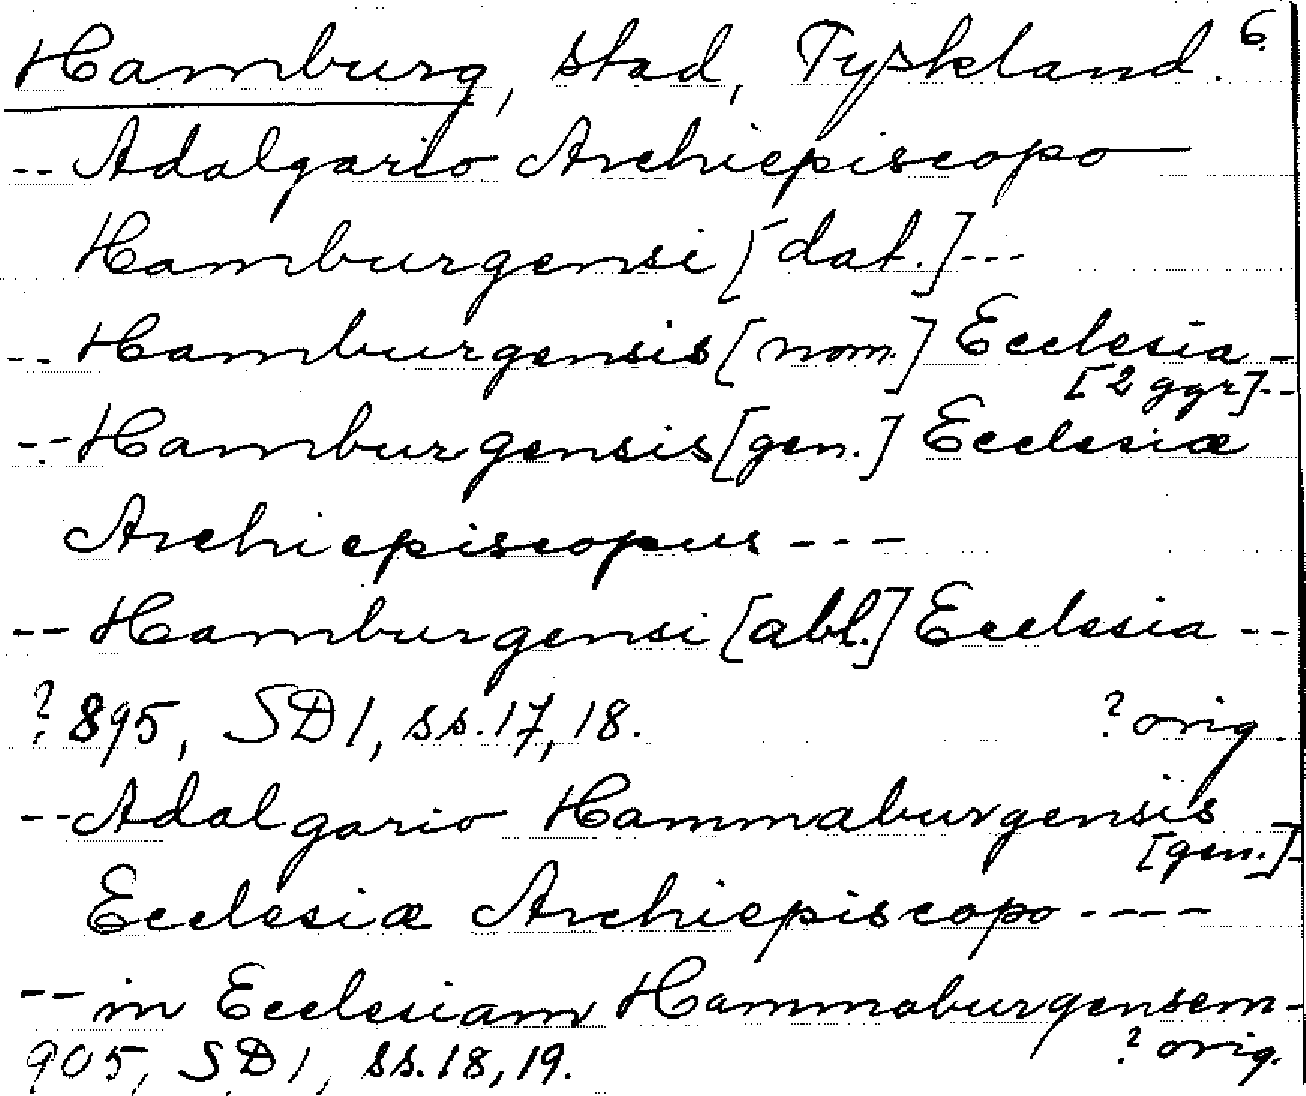 Hamburg, stad, Tyskland. 6.
-- Adalgario Archiepiscopo —
Hamburgensi [dat.] ---
-- Hamburgensis [nom.] Ecclesia --
[2 ggr] --
-- Hamburgensis [gen.] Ecclesiæ
Archiepiscopus ---
-- Hamburgensi [abl.] Ecclesia --
? 895, SD 1, ss. 17, 18. ? orig.
-- Adalgario Hammaburgensis
[gen.] -
Ecclesiæ Archiepiscopo ----
-- in Ecclesiam Hammaburgensem -
905, SD 1, ss. 18, 19. ? orig.